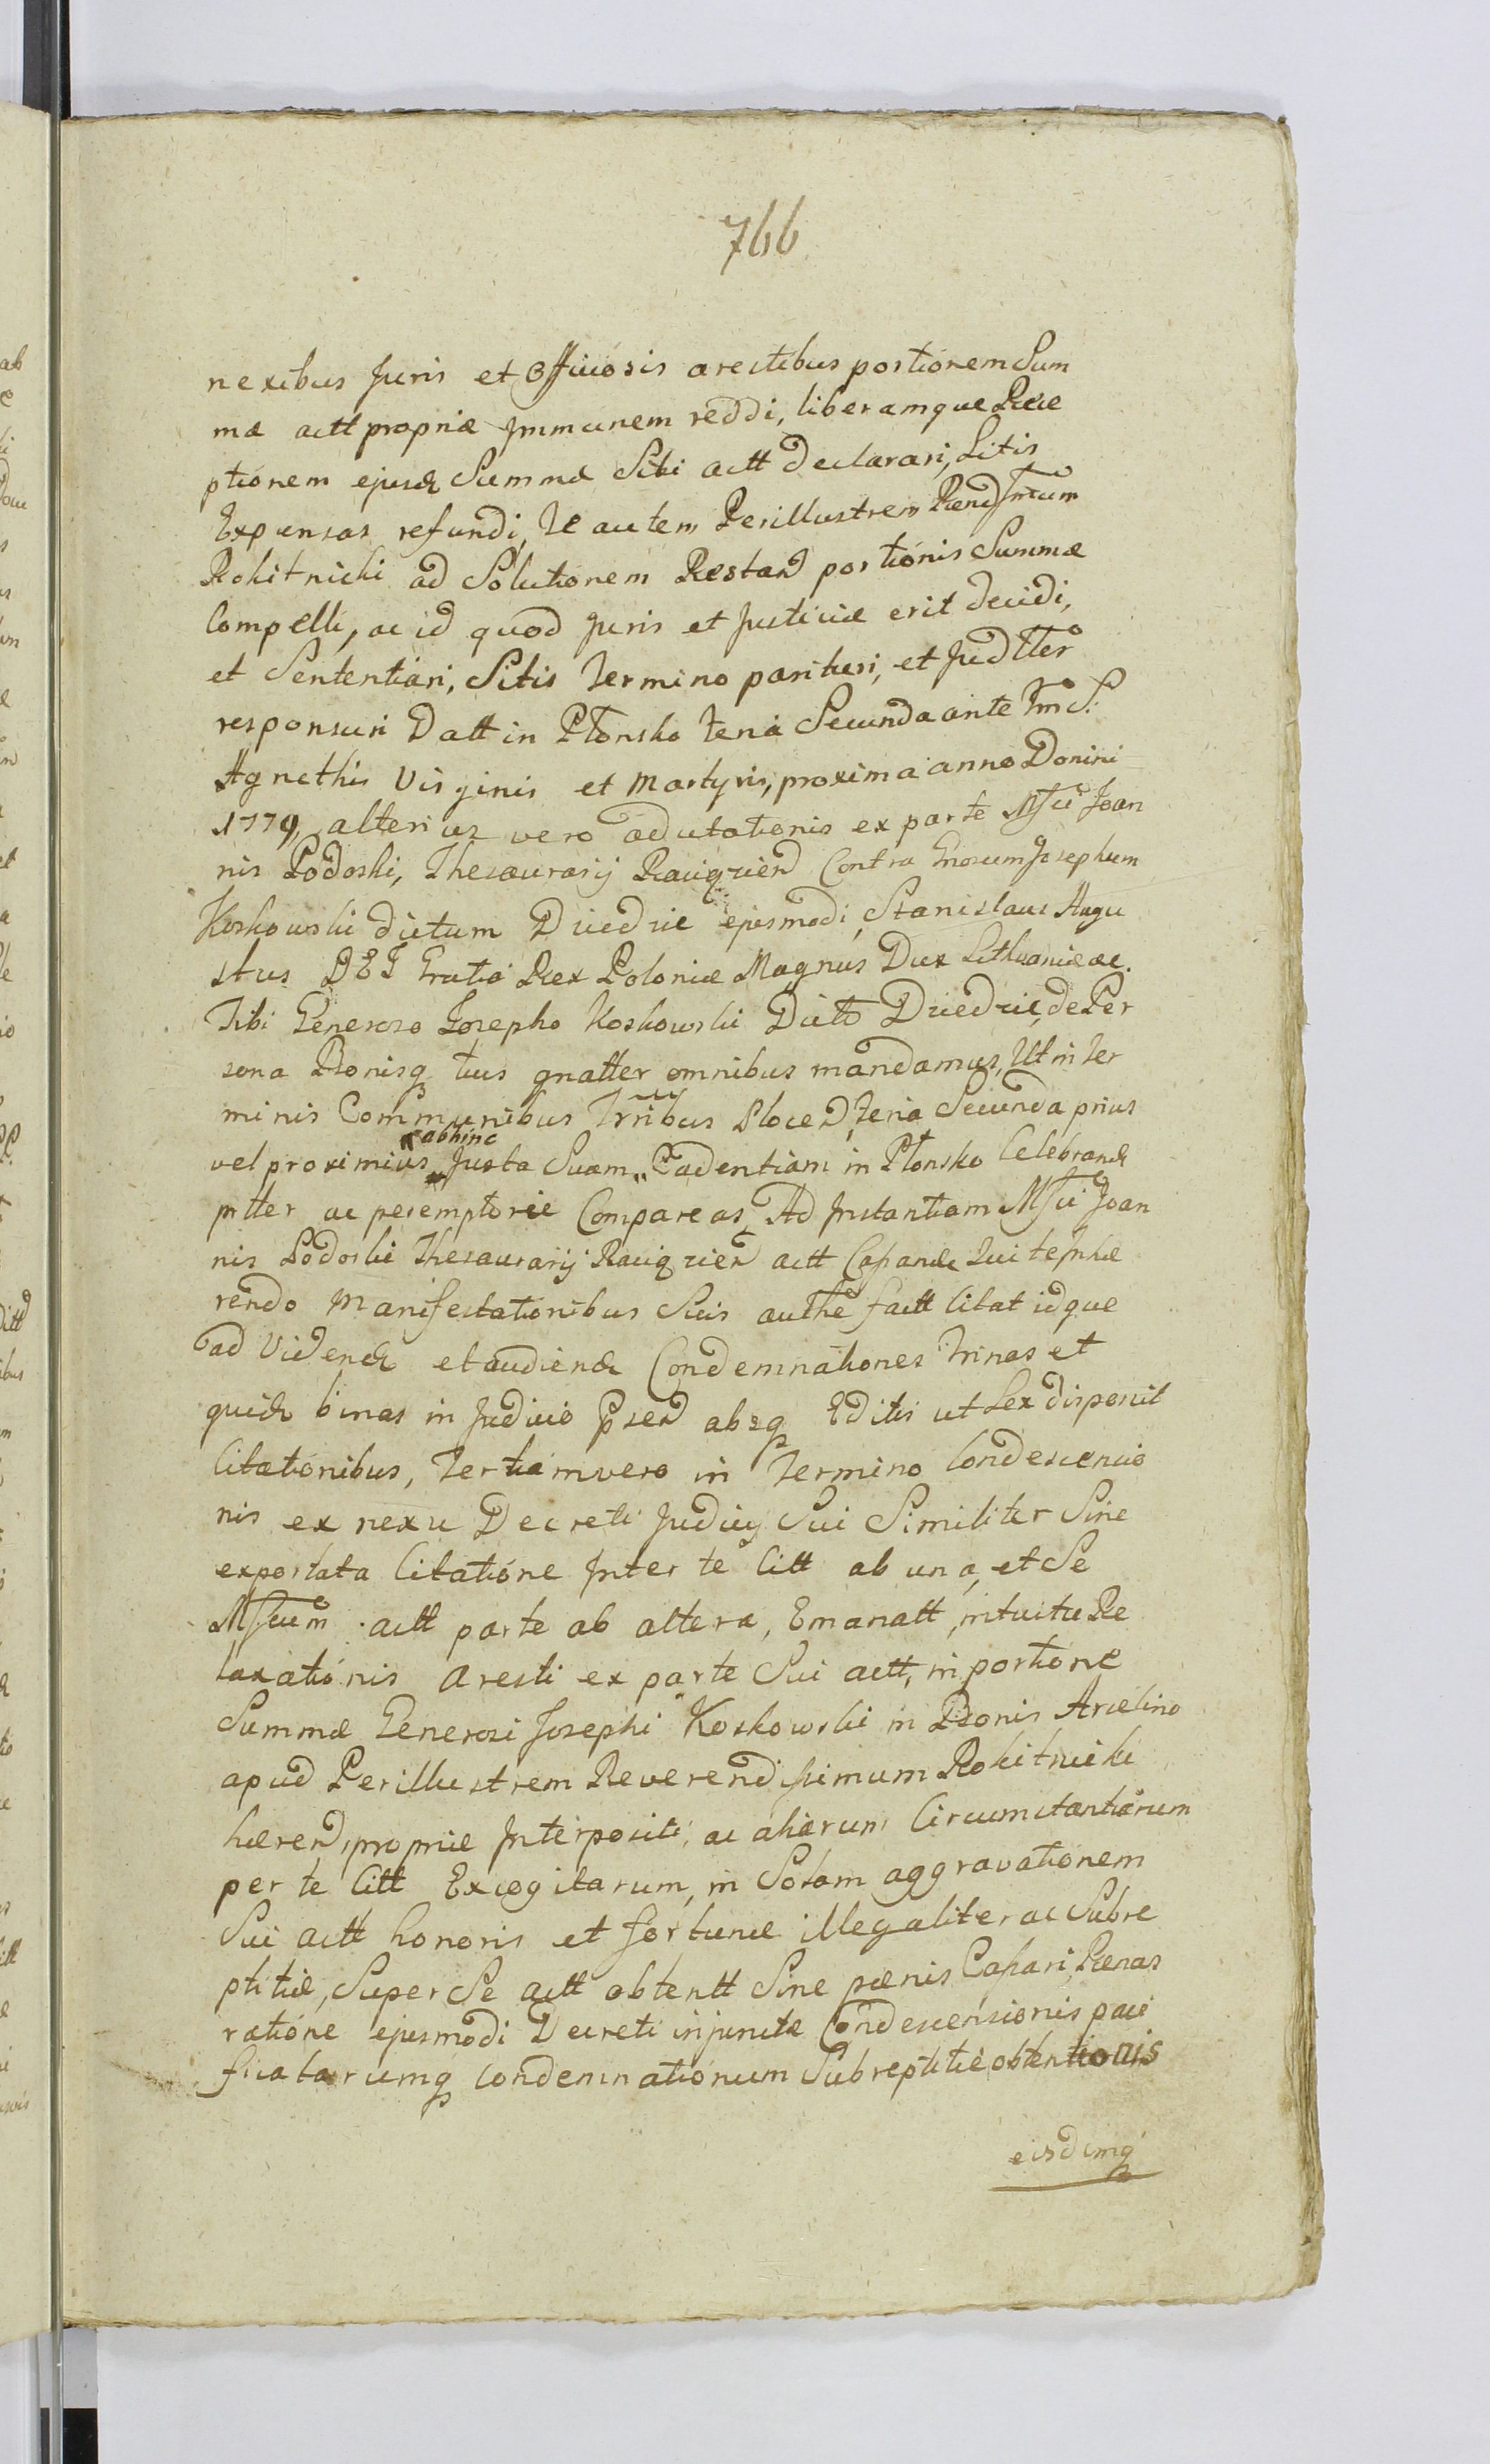 766
nexibus Juris et Officiosis arestibus portionem Sum
mæ actt propriæ Immunem reddi, liberamque Rece
ptionem ejusd Summæ Sibi actt declarari, Litis
Expensas refundi, Te autem Perillustrem Rend
Rokitnicki ad Solutionem Restan portionis Summæ
Compelli, ac id quod Juris et Justiciæ erit decidi,
et Sententiari, Sitis Termino parituri, et Judtter
responsuri Datt in Płonsko feria Secunda ante S.
Agnethis Virginis et Martyris, proxima anno Domini
1779, alterius vero adcitationis ex parte Joan
nis Podoski, Thesaurarij contra Gnosum Josephum
Koskowski dictum Dziedzic ejusmodi, Stanislaus Augu
stus DEI Gratia Rex Poloniæ Magnus Dux Lithuaniæ ac.
Tibi Generoso Josepho Koskowski Dicto Dziedzic, de Per
sona Bonisq tuis gnatter omnibus mandamus, Ut in Ter
minis Communibus Trribus Plocen, feria Secunda prius
vel proximius abhinc Juxta Suam Cadentiam in Płonsko Celebrand
ptter ac peremptorie Compareas, Ad Instantiam Joan
nis Podoski Thesaurarij actt Capand Qui te Inhæ
rendo Manifestationibus Suis authe factt Citat idque
ad Videnda et audienda Condemnationes Trinas et
quid binas in Judicio absq Editis ut Lex disposuit
Citationibus, Tertiam vero in Termino Condescensio
nis ex nexu Decreti Judicij Sui Similiter Sine
exportata Citatione Inter te Citt ab una, et Se
actt parte ab altera, Emanatt, intuitu Re
laxationis aresti ex parte Sui actt, in portione
Summæ Generosi Josephi Koskowski in Bonis Arcelino
apud Perillustrem Reverendissimum Rokitnicki
hæren, proprie Interpositi, ac aliarum Circumstantiarum
per te Citt Excogitarum, in Solam aggravationem
Sui actt honoris et fortunæ illegaliter ac Subre
ptitiæ, Super Se actt obtentt Sine pænis Cassari, Pænas
ratione ejusmodi Decreti injunctæ Condescensionis paci
ficatarumq Condemnationum Subreptitie obtentionis
eisdemq